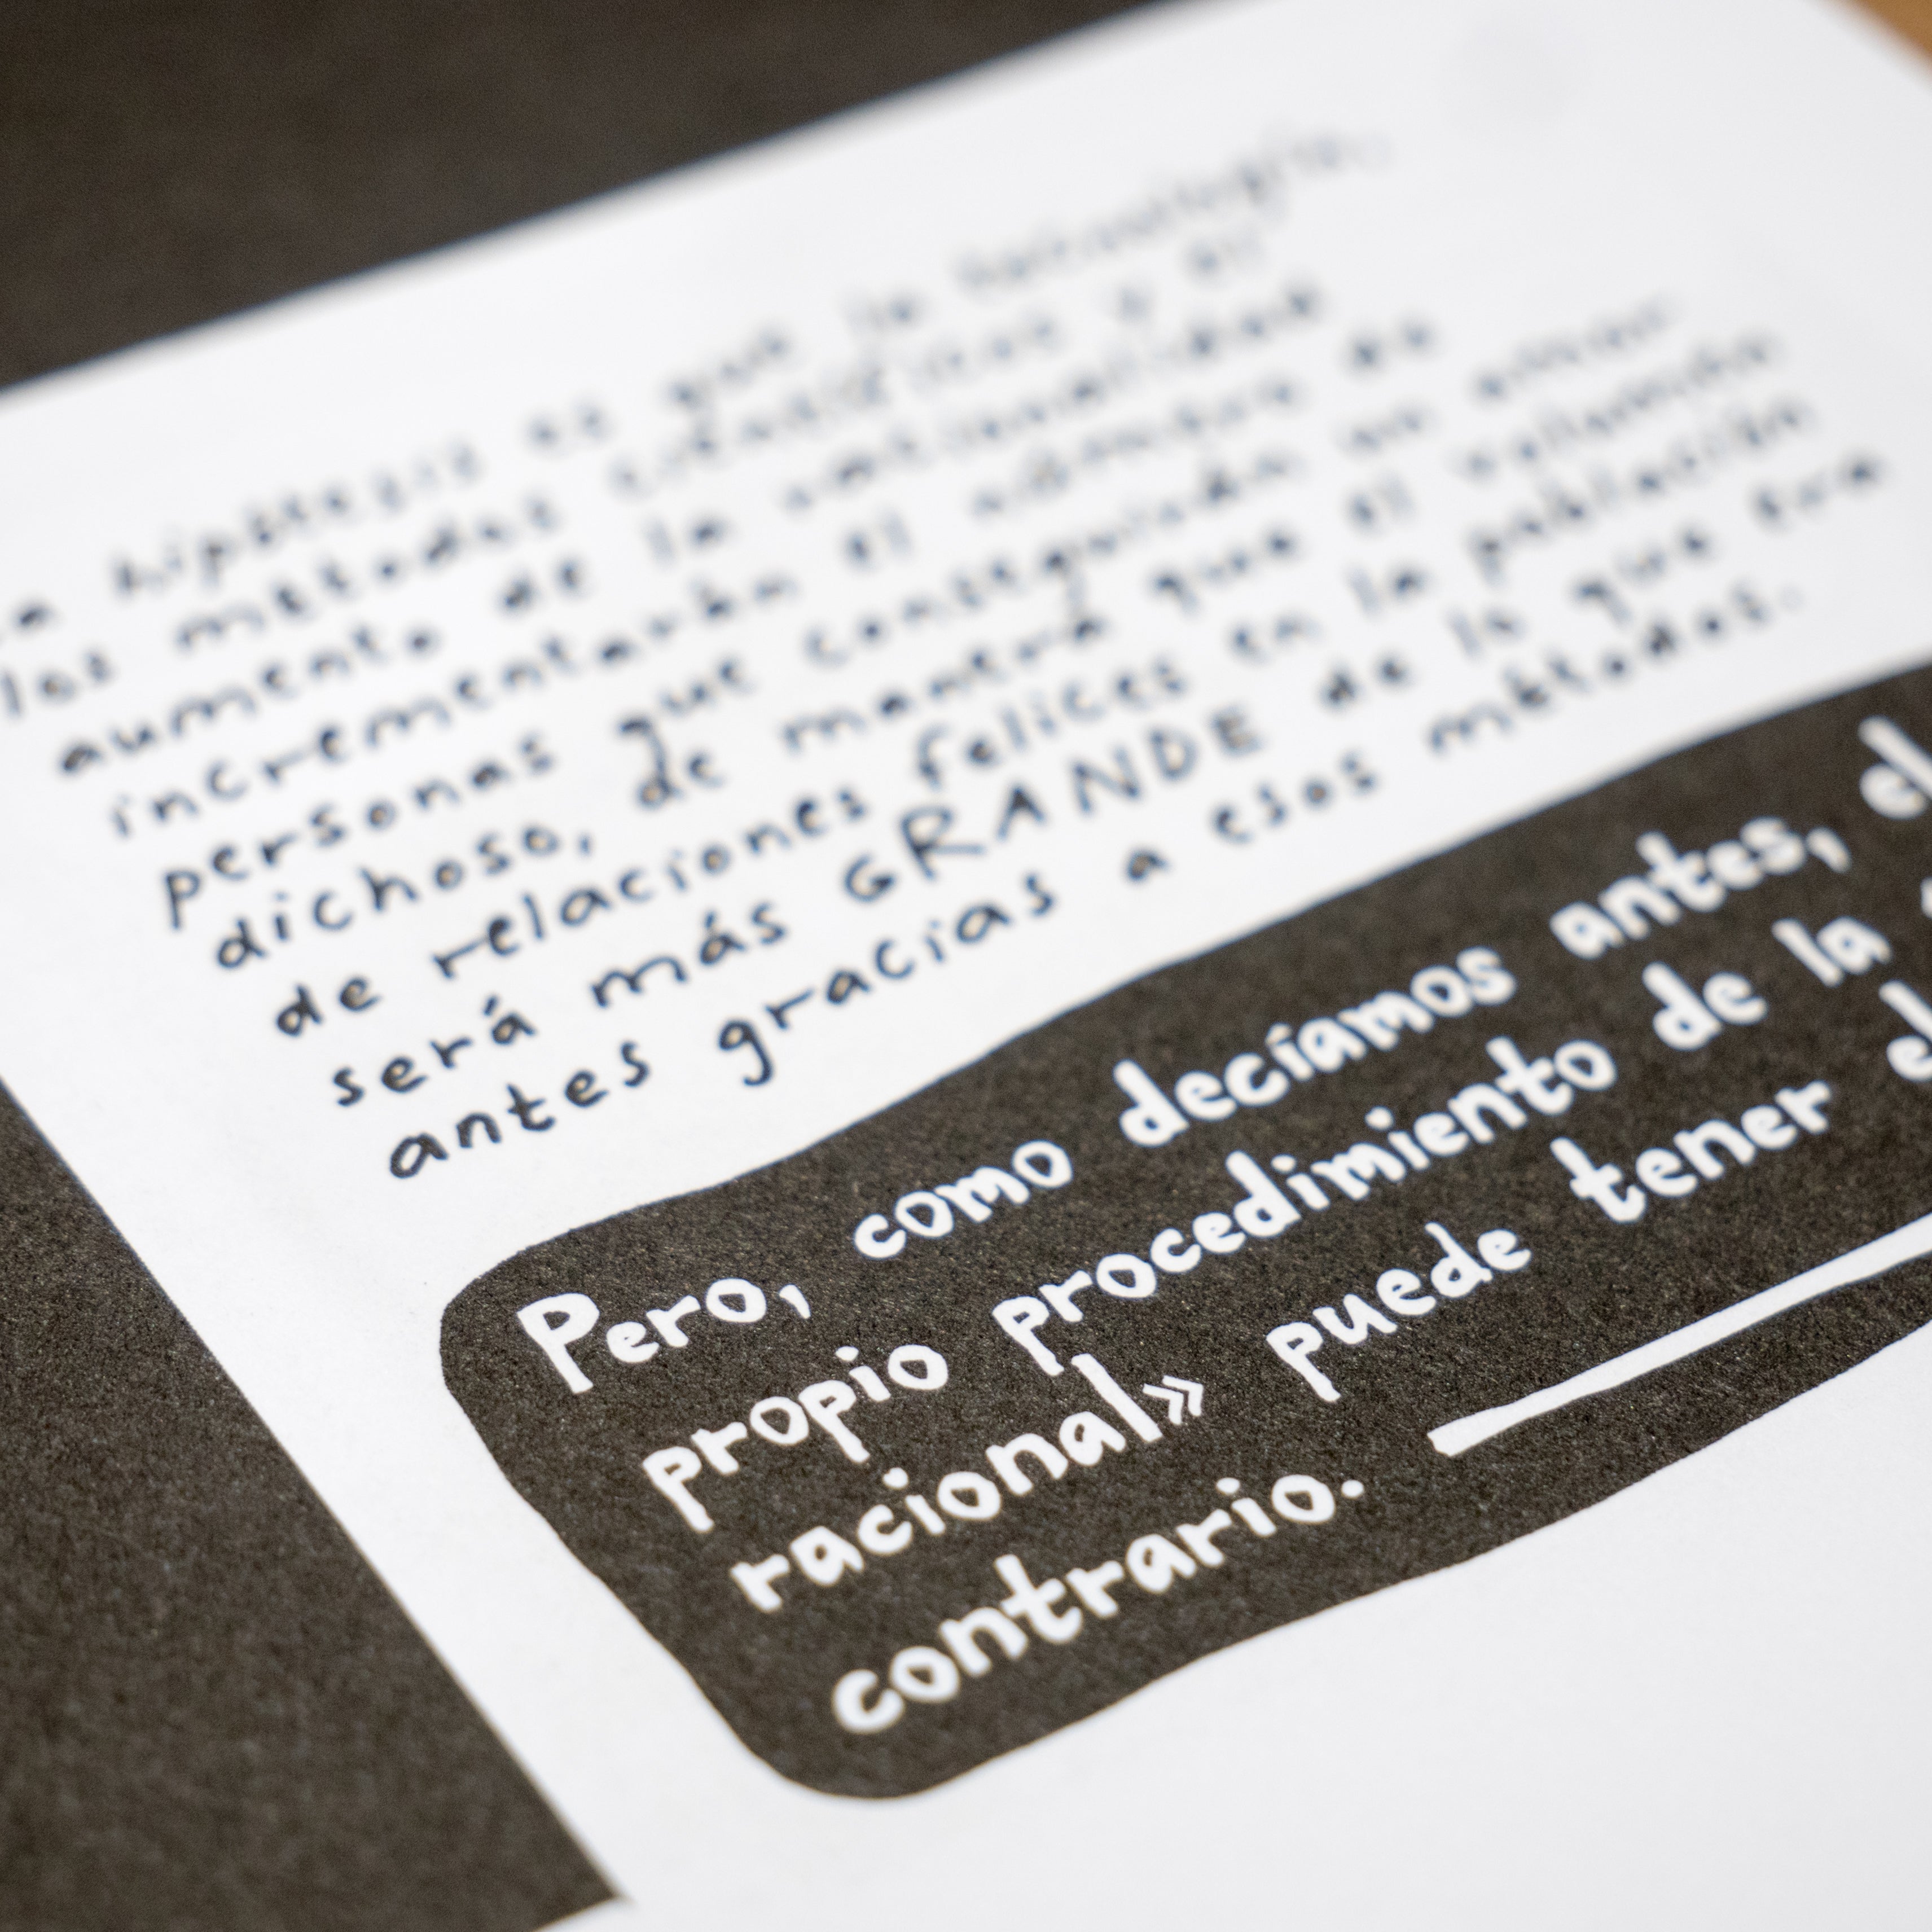 hipótesis es que la tecnología,
los métodos científicos y el
aumento de la racionalidad
incrementarán el número de
personas que conseguirán un amor
dichoso, de manera que el volumen
de relaciones felices en la población
será más GRANDE de lo que era
antes gracias a esos métodos.
Pero, como decíamos antes, el
propio procedimiento de la
racional» puede tener el
contrario.